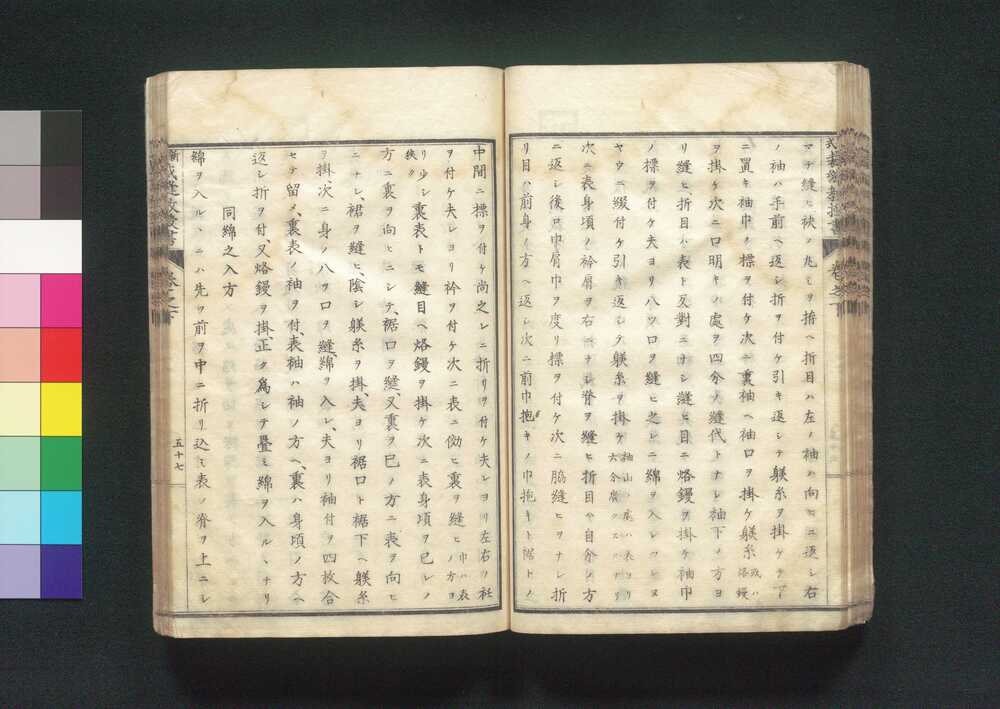 マテ縫ヒ袂ノ丸ミヲ拵ヘ折目ハ左ノ袖ハ向ヒニ返シ右
ノ袖ハ手前ヘ返シ折ヲ付ケ引キ返シテ躾糸ヲ掛ケテ
ニ置キ袖巾ノ標ヲ付ケ次ニ裏袖ヘ袖口ヲ掛ケ躾糸 或ハ烙鏝
ヲ掛ケ次ニ口明キノ處ヲ四分ノ縫代トナシ袖下ノ方ヨ
リ縫ヒ、折目ハ表ト反對ニナシ縫ヒ目ニ烙鏝ヲ掛ケ袖巾
ノ標ヲ付ケ夫ヨリ八ツ口ヲ縫ヒ之レニ綿ヲ入レ
ヤウニ綴付ケ引キ返シテ躾糸ヲ掛ケ
次ニ表身頃ノ衿肩ヲ右ニナシ脊ヲ縫ヒ折目ヤ自分ノ方
ニ返シ後ロ巾肩巾ヲ度リ標ヲ付ケ次ニ脇縫ヒヲナシ折
リ目ハ前身ノ方ヘ返シ次ニ前巾抱キノ巾抱キト裾トノ
中間ニ標ヲ付ケ尚之レニ折リヲ付ケ夫レヨリ左右ノ衽
ヲ付ケ夫レヨリ衿ヲ付ケ次ニ表ニ倣ヒ裏ヲ縫ヒ 巾ハ表ノ方ヨ
リ少シ狹ク裏表トモ縫目ヘ烙鏝ヲ掛ケ次ニ表身頃ヲ巳レノ
方ニ裏ヲ向ヒニシテ、裾口ヲ縫、又裏ヲ巳ノ方ニ表ヲ向ヒ
ニナシ、裾ヲ縫ヒ、陰シ躾糸ヲ掛、夫ヨリ裾口ト裾下ヘ躾糸
ヲ掛、次ニ身ノ八ツ口ヲ縫、綿ヲ入レ、夫ヨリ袖付ヲ四枚合
セテ留メ、裏表ノ袖ヲ付、表袖ハ袖ノ方ヘ、裏ハ身頃ノ方ヘ
返シ折ヲ付、又烙鏝ヲ掛、正ク爲シテ疊ミ綿ヲ入ルヽナリ
同綿之入方
綿ヲ入ルヽニハ先ヲ前ヲ中ニ折リ込ミ表ノ脊ヲ上ニシ
裁縫教授書
卷之下
五十七